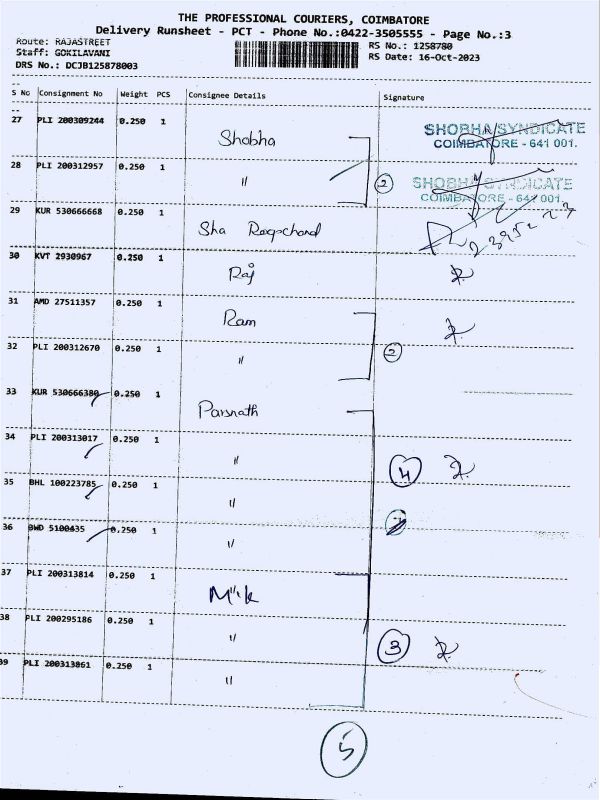 THE PROFESSIONAL COURIERS, COIMBATORE
Delivery Runsheet - PCT - Phone No.:0422-3505555 - Page No.:3
Route: RAJASTREET
Staff: GOKILAVANI
DRS No.: DCJB125878003
RS No.: 1258780
RS Date: 16-Oct-2023
S No Consignment No Weight PCS Consignee Details Signature
27 PLI 200309244 0.250 1 Shobha SHOBHA SYNDICATE
COIMBATORE - 641 001.
28 PLI 200312957 0.250 1 " 2 SHOBHA SYNDICATE
COIMBATORE - 641 001.
29 KUR 530666668 0.250 1 Sha
30 KVT 2930967 0.250 1 Raj
31 AMD 27511357 0.250 1 Ram
32 PLI 200312670 0.250 1 " 2
33 KUR 530666380 0.250 1 Parsnath
34 PLI 200313017 0.250 1 " 4
35 BHL 100223785 0.250 1 "
36 BWD 5100435 0.250 1 "
37 PLI 200313814 0.250 1
38 PLI 200295186 0.250 1 " 3
39 PLI 200313861 0.250 1 "
5